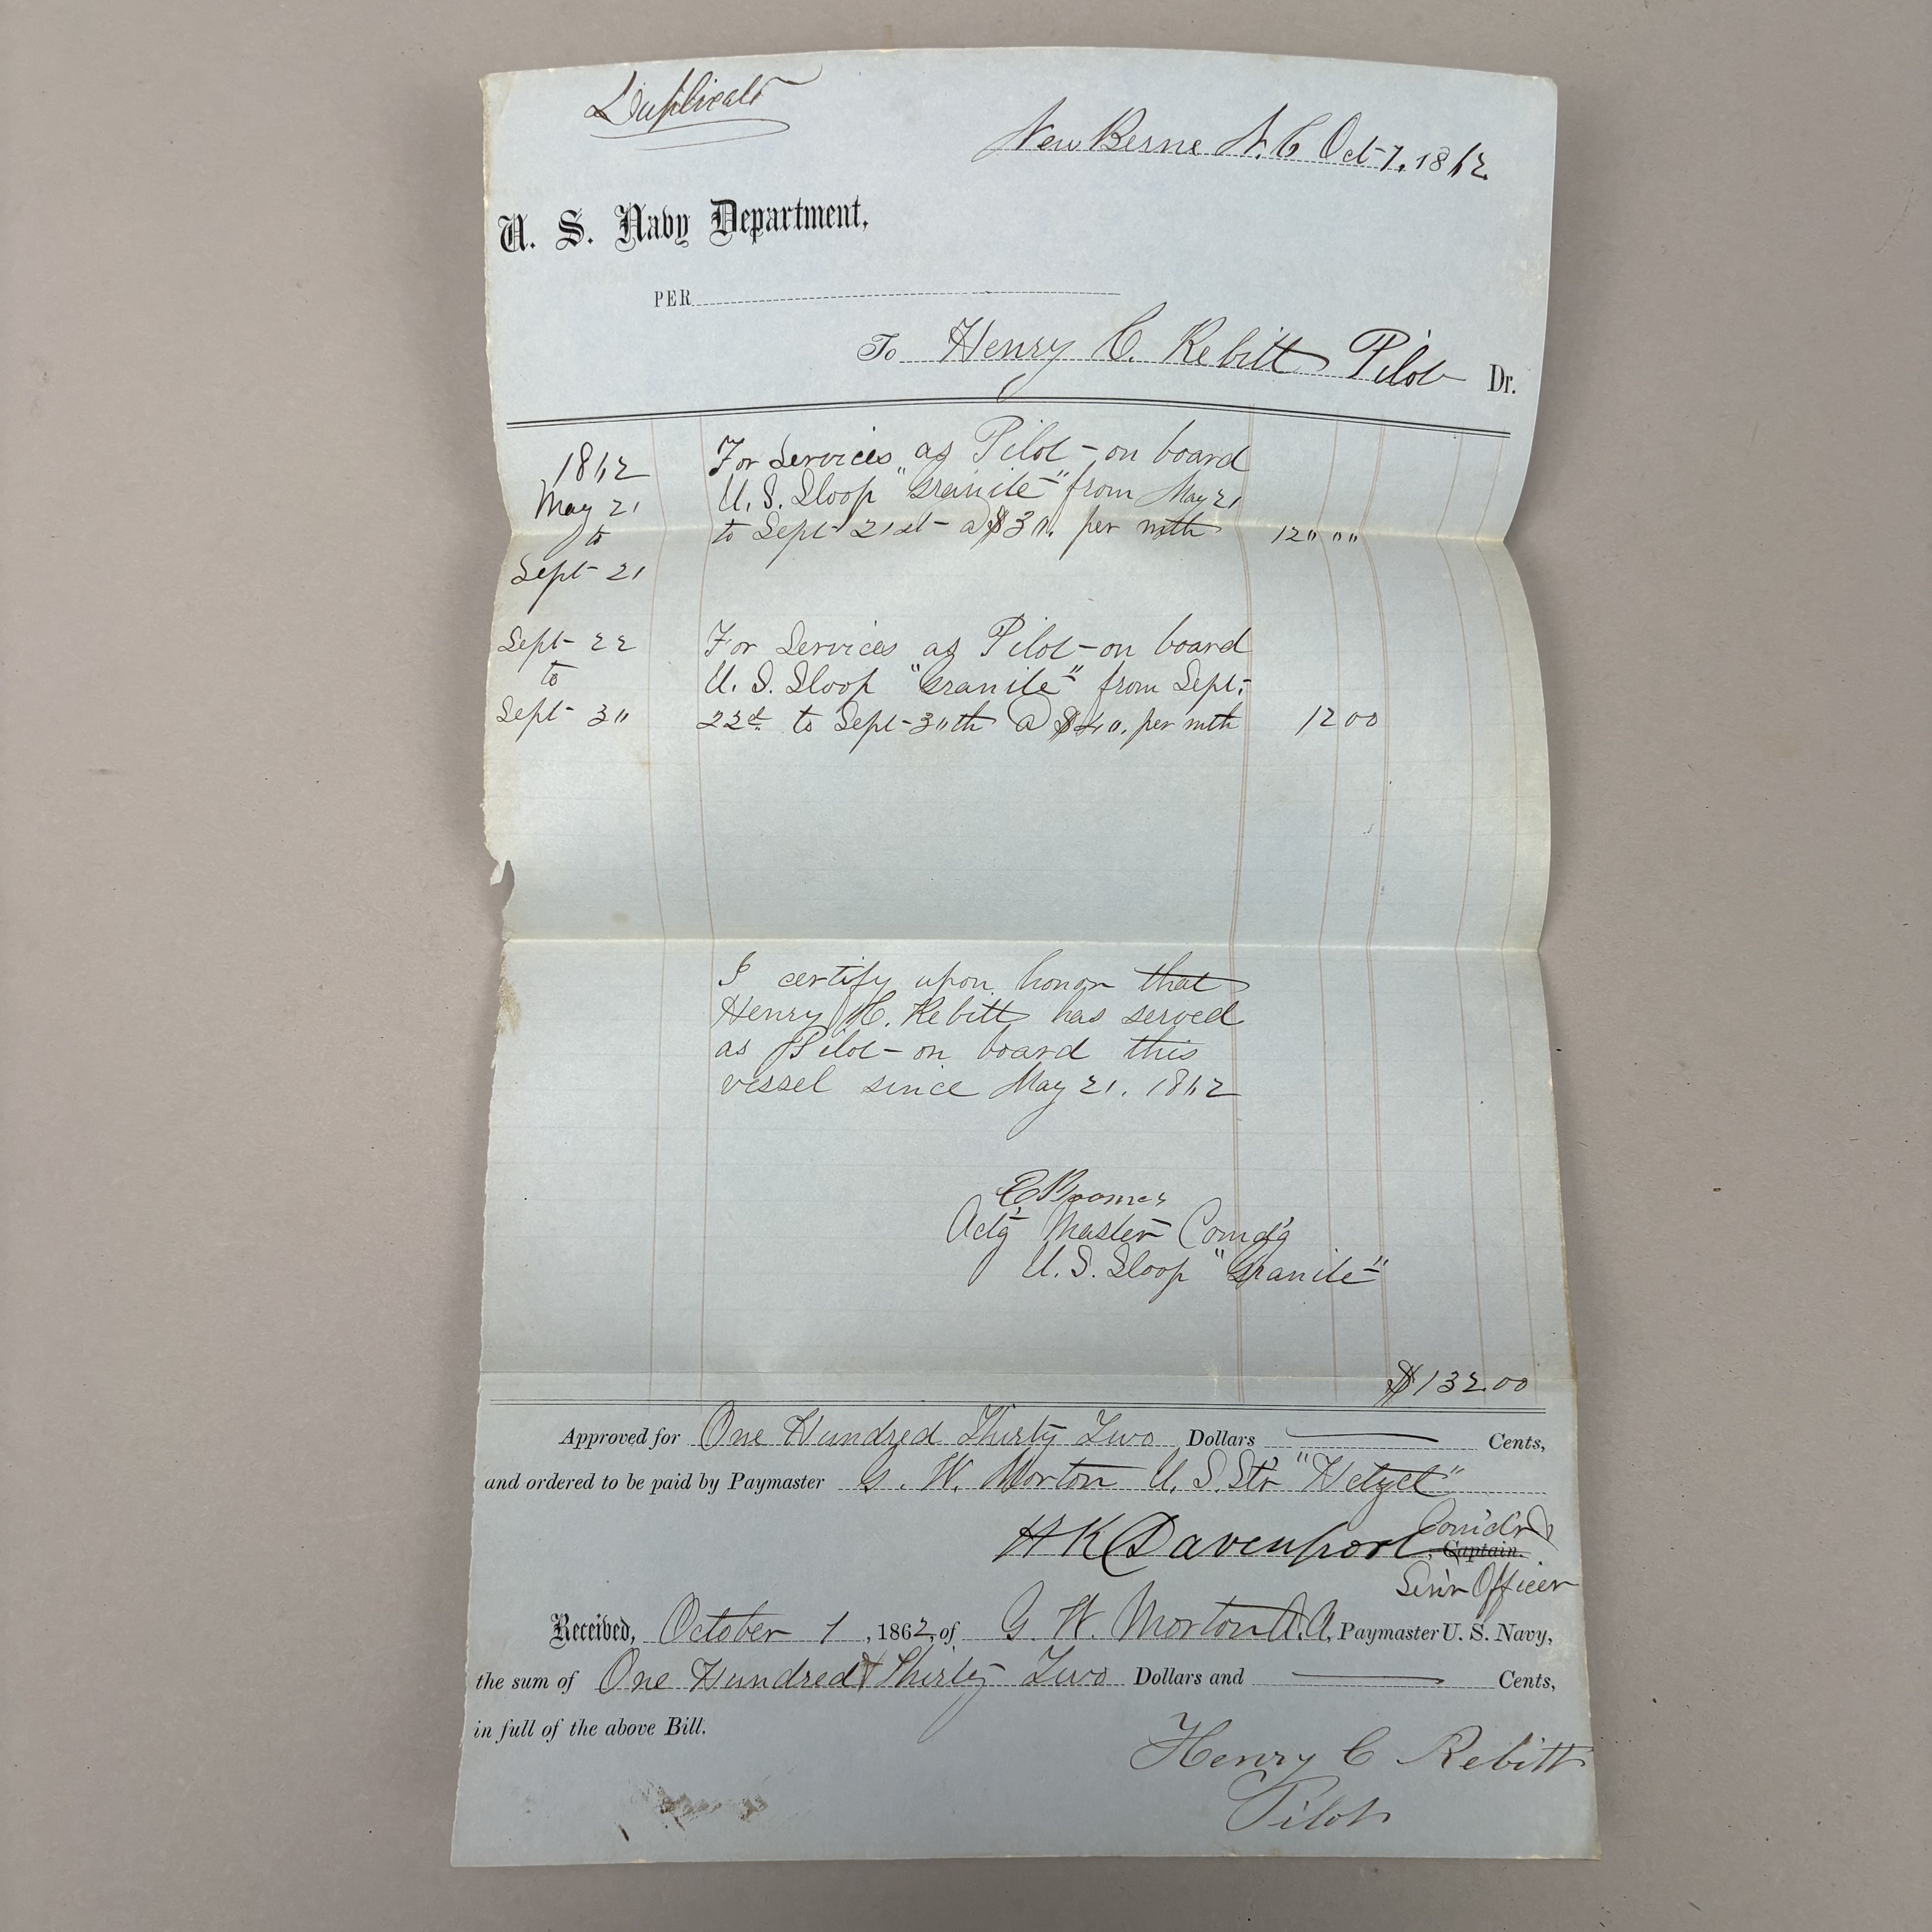 Duplicate
New Berne N.C Oct 1, 1862
U. S. Navy Department,
PER
To Henry C. Rebitt Pilot Dr.
1862
May 21
to
Sept 21
For Services as Pilot on board
U. S. Sloop "Granite" from May 21
to Sept 21st @ $30. per mth 120 00
Sept 22
to
Sept 30
For Services as Pilot on board
U. S. Sloop "Granite" from Sept.
22d to Sept 30th @ $40. per mth 12 00
I certify upon honor that
Henry C. Rebitt has served
as Pilot on board this
vessel since May 21. 1862
E Boomer
Actg Master Comdg
U. S. Sloop "Granite"
$132.00
Approved for One Hundred Thirty Two Dollars Cents,
and ordered to be paid by Paymaster G. W. Morton U. S. Str "Hetzel"
H K Davenport Comdr &
, Captain.
Senr Officer
Received, October 1, 1862, of G. W. Morton A. A. Paymaster U. S. Navy,
the sum of One Hundred & Thirty Two Dollars and Cents,
in full of the above Bill.
Henry C Rebitt
Pilot